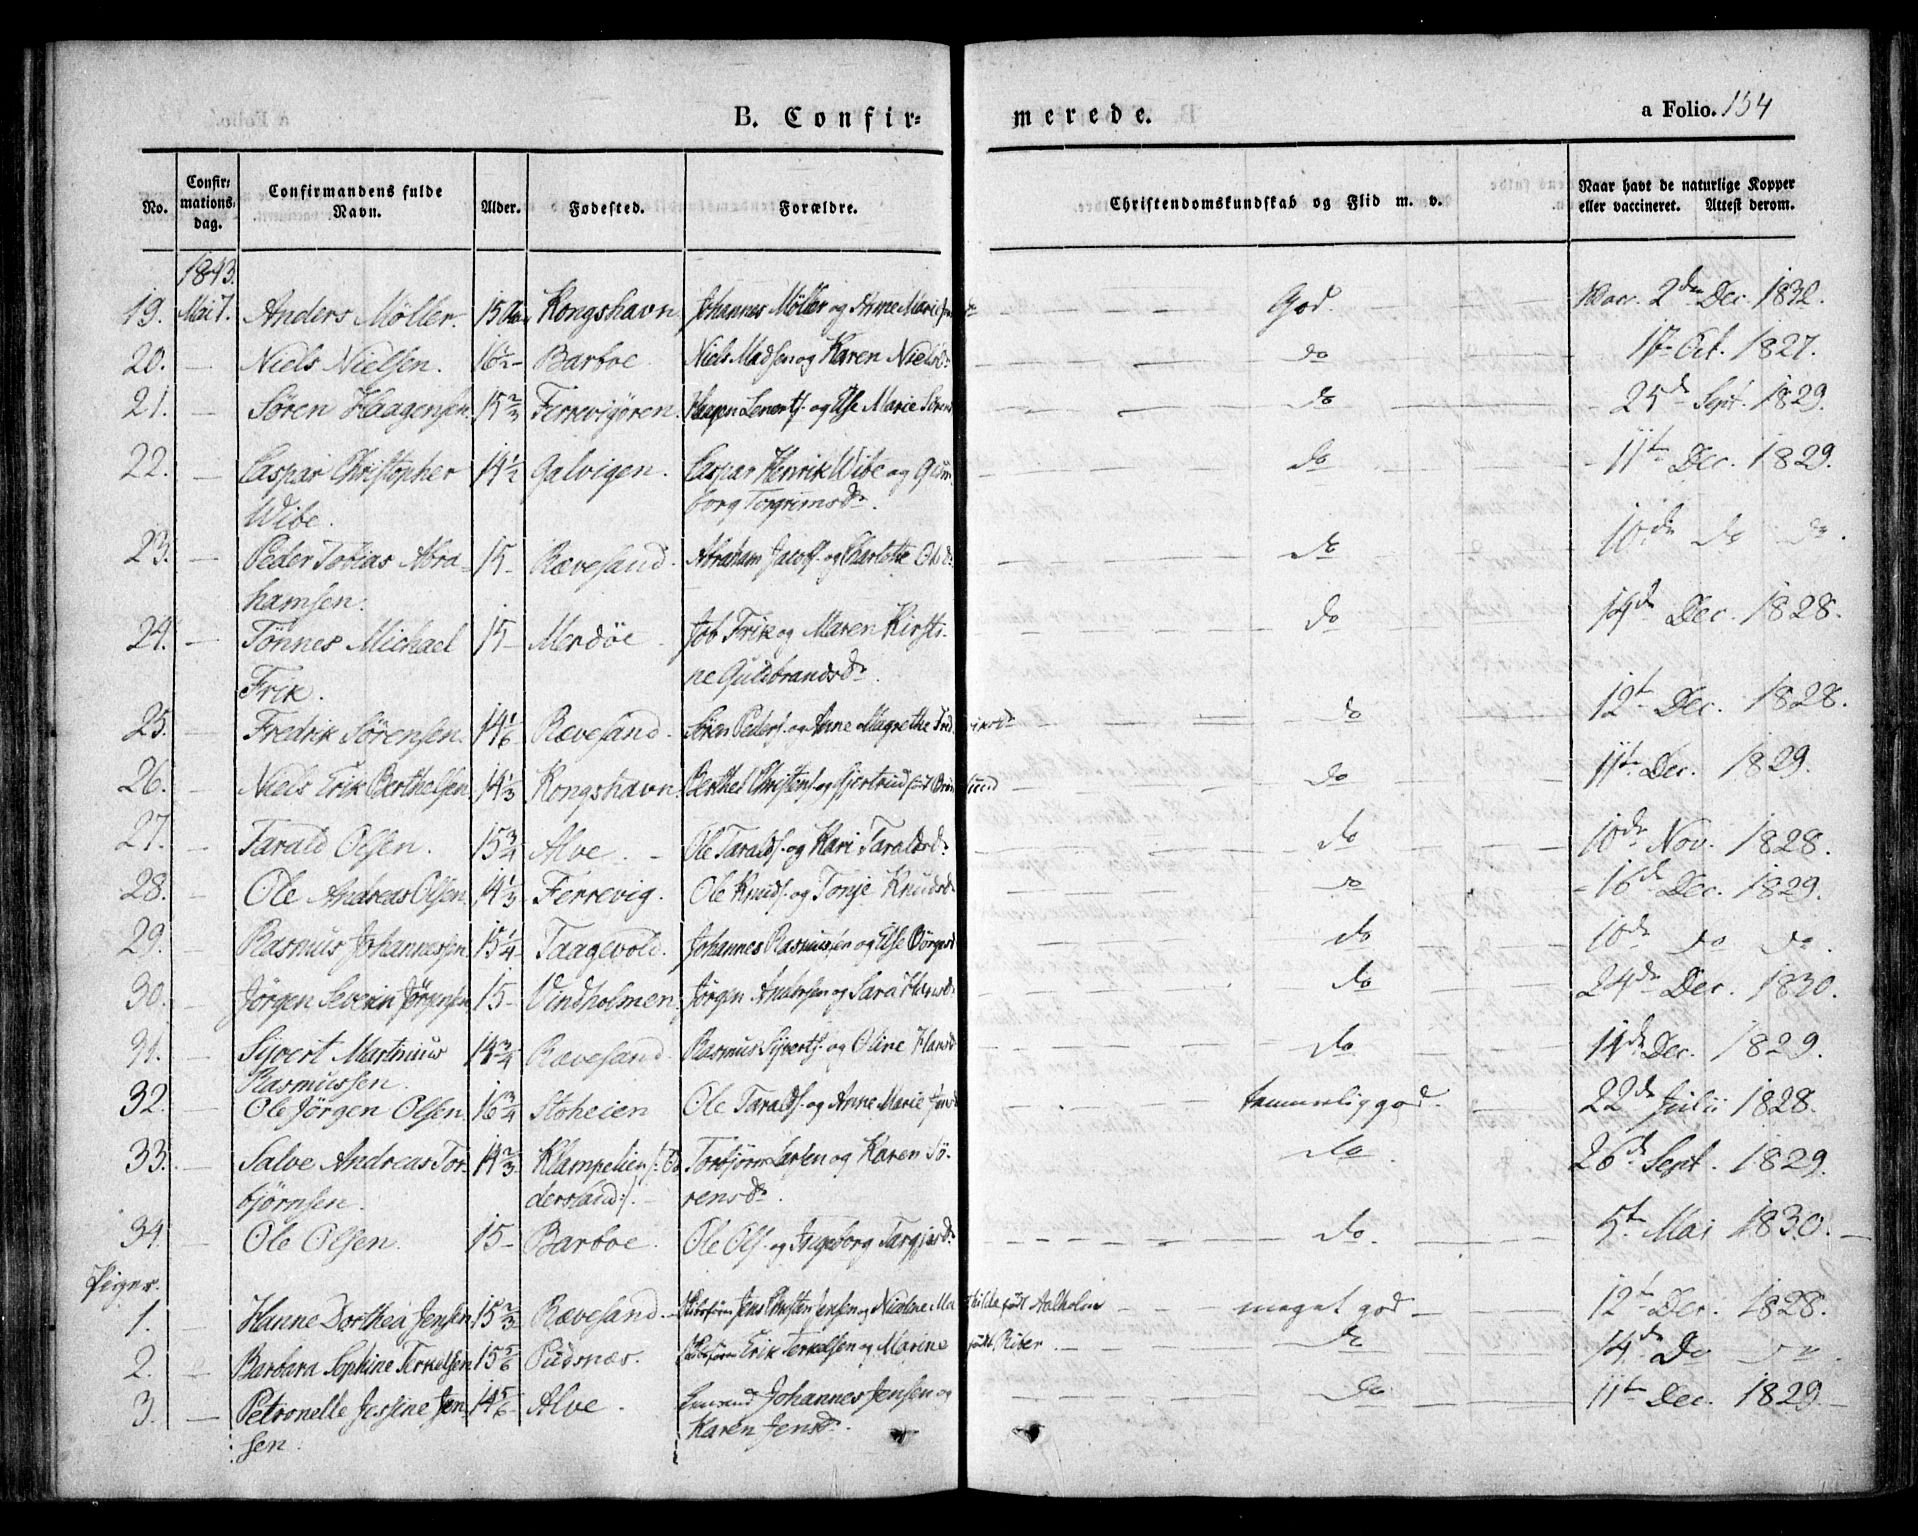 B. Confir= merede. a Folio. 154
No. Confir=mations dag. Confirmandens fulde Navn. Alder. Fødested. Forældre. Christendomskundskab og Flid m. v. Naar havt de naturlige Kopper eller vaccineret. Attest derom.
1843.
19. Mai 7. Anders Møller. 15 Kongshavn Johannes Møller og Anne Marie God. Vac. 2den Dec. 1832.
20. — Niels Nielsen. 16½ Barboe Niels Madsen og Karen Nielsd. do 17 Oct. 1827.
21. — Søren Haagensen 15⅔ Ferrevigøren. Haagen Lenerts. og Else Marie Sørensd do 25d Sept. 1829.
22. — Caspar Christopher 14½ Galvigen. Caspar Henrik Wibe og Gun do 11te Dec. 1829.
Wibe. borg Torgrimsdr.
23. — Peder Tobias Abra- 15 Rævesand. Abraham Jacobs. og Charlotte Olsd. do 10de do do.
hamsen.
24. — Tønnes Michael 15 Merdøe Job Frik og Maren Kirsti- do 19de Dec. 1828.
Frik. ne Guldbrandsdr.
25. — Fredrik Sørensen. 14⅙ Rævesand. Søren Peders. og Anne Magrethe Fredriksdr do 12te Dec. 1828.
26. — Niels Erik Berthelsen 14⅓ Kongshavn Berthel Christens. og Gjertrud født do 11te Dec. 1829.
27. — Tarald Olsen. 15¾ Alve. Ole Taralds. og Kari Taraldsdr do 10de Nov. 1828.
28. — Ole Andreas Olsen 14⅓ Ferrevig. Ole Knuds. og Tonje Knudsd. do 16de Dec. 1829.
29. — Rasmus Johannesen 15¼ Taagevold. Johannes Rasmussen og Else Børgesd do 10de do do.
30. — Jørgen Severin Jørgensen 15 Vindholmen Jørgen Andersen og Sara do 24de Dec. 1830.
31. — Sivert Martinius 14¾ Rævesand Rasmus Siverts. og Oline Hansd do 11de Dec. 1829.
Rasmussen.
32. — Ole Jørgen Olsen 16¾ Stoheien Ole Taralds. og Anne Marie Jensd temmelig god. 22de Julii 1828.
33. — Salve Andreas Tor- 14⅔ Klampelien Torbjørn Larsen og Karen Sø- do 26de Sept. 1829.
bjørnsen. dersland:/. rensdr.
34. — Ole Olsen. 15 Barboe. Ole Ols. og Ingeborg Targjersd. do 5te Mai 1830.
Piger.
1. — Hanne Dorthea Jensen 15⅔ Rævesand Skibsfører Jens Christen Jensen og Nicoline Mathilde født Aalholm meget god 12te Dec. 1828.
2. Barbara Sophine Terkelsen 15⅚ Pudsnæs. Skibsfører Erik Terkelsen og Marine født Riber. do 14de Do do.
3. — Petronelle Jessine Jen 14⅚ Alve. Johannes Jensen og do 11te Dec. 1829
sen. Karen Jensdr.